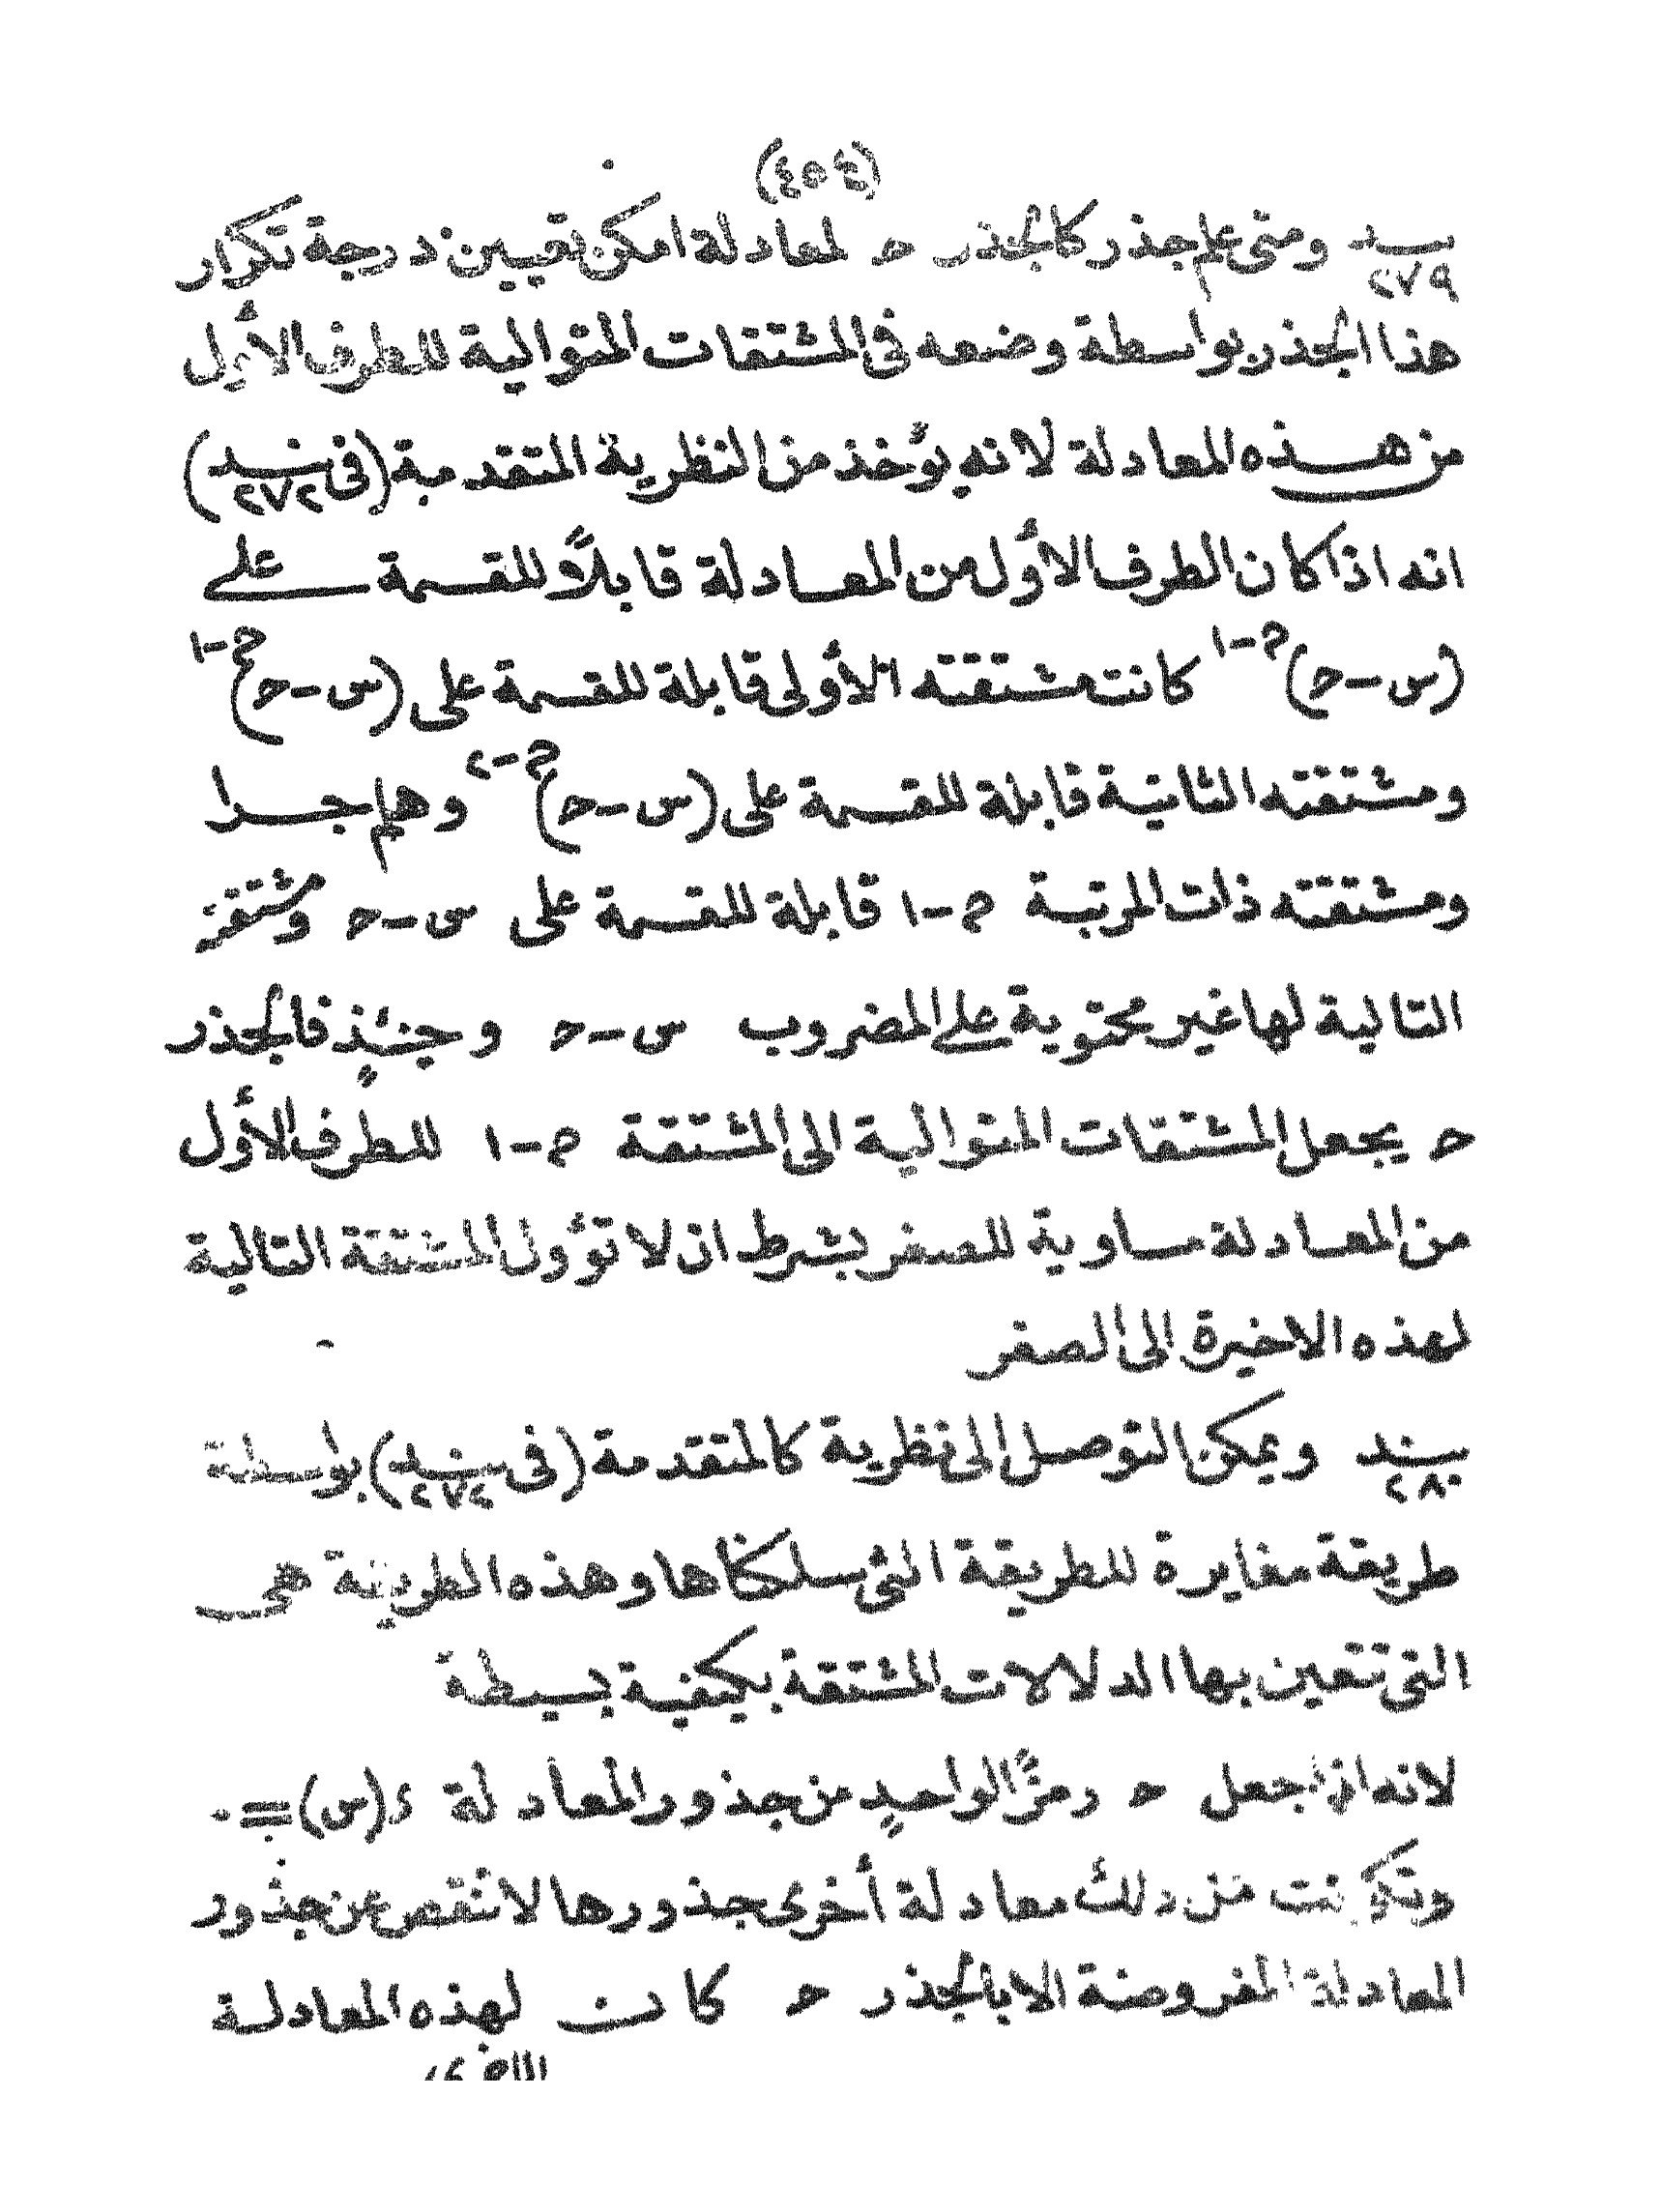 (٤٥٤)
بند ٢٧٩ ومتى علم جذر كالجذر حـ لمعادلة امكن تعيين درجة تكرار
هذا الجذر بواسطة وضعه فى المشتقات المتوالية للطرف الأول
من هـذه المعادلة لانه يؤخذ من النظرية المتقدمة (فى بند ٢٧٢)
انه اذا كان الطرف الأول من المعـادلة قابلاً للقسمة علـى
(س-حـ)^م-١ كانت مشتقته الأولى قابلة للقسمة على (س-حـ)^م-١
ومشتقته الثانية قابلة للقسمة على (س-حـ)^م-٢ وهلم جـرا
ومشتقته ذات المرتبة م-١ قابلة للقسمة على س-حـ ومشتقته
التالية لها غير محتوية على المضروب س-حـ وحينئذٍ فالجذر
حـ يجعل المشتقات المتوالية الى المشتقة م-١ للطرف الأول
من المعـادلة مساوية للصفر بشرط ان لا تؤول المشتقة التالية
لهذه الاخيرة الى الصفر
بند ٢٨٠ ويمكن التوصل الى نظرية كالمتقدمة (فى بند ٢٧٢) بواسطة
طريقة مغايرة للطريقة التى سلكناها وهذه الطريقة هى
التى تتعين بها الدلالات المشتقة بكيفية بسيطة
لانه اذا جعل حـ رمزًا لواحدٍ من جذور المعادلة د(س)=٠
وتكونت من ذلك معادلة أخرى جذورها لا تنقص عن جذور
المعادلة المفروضة الا بالجذر حـ كان لهذه المعادلة